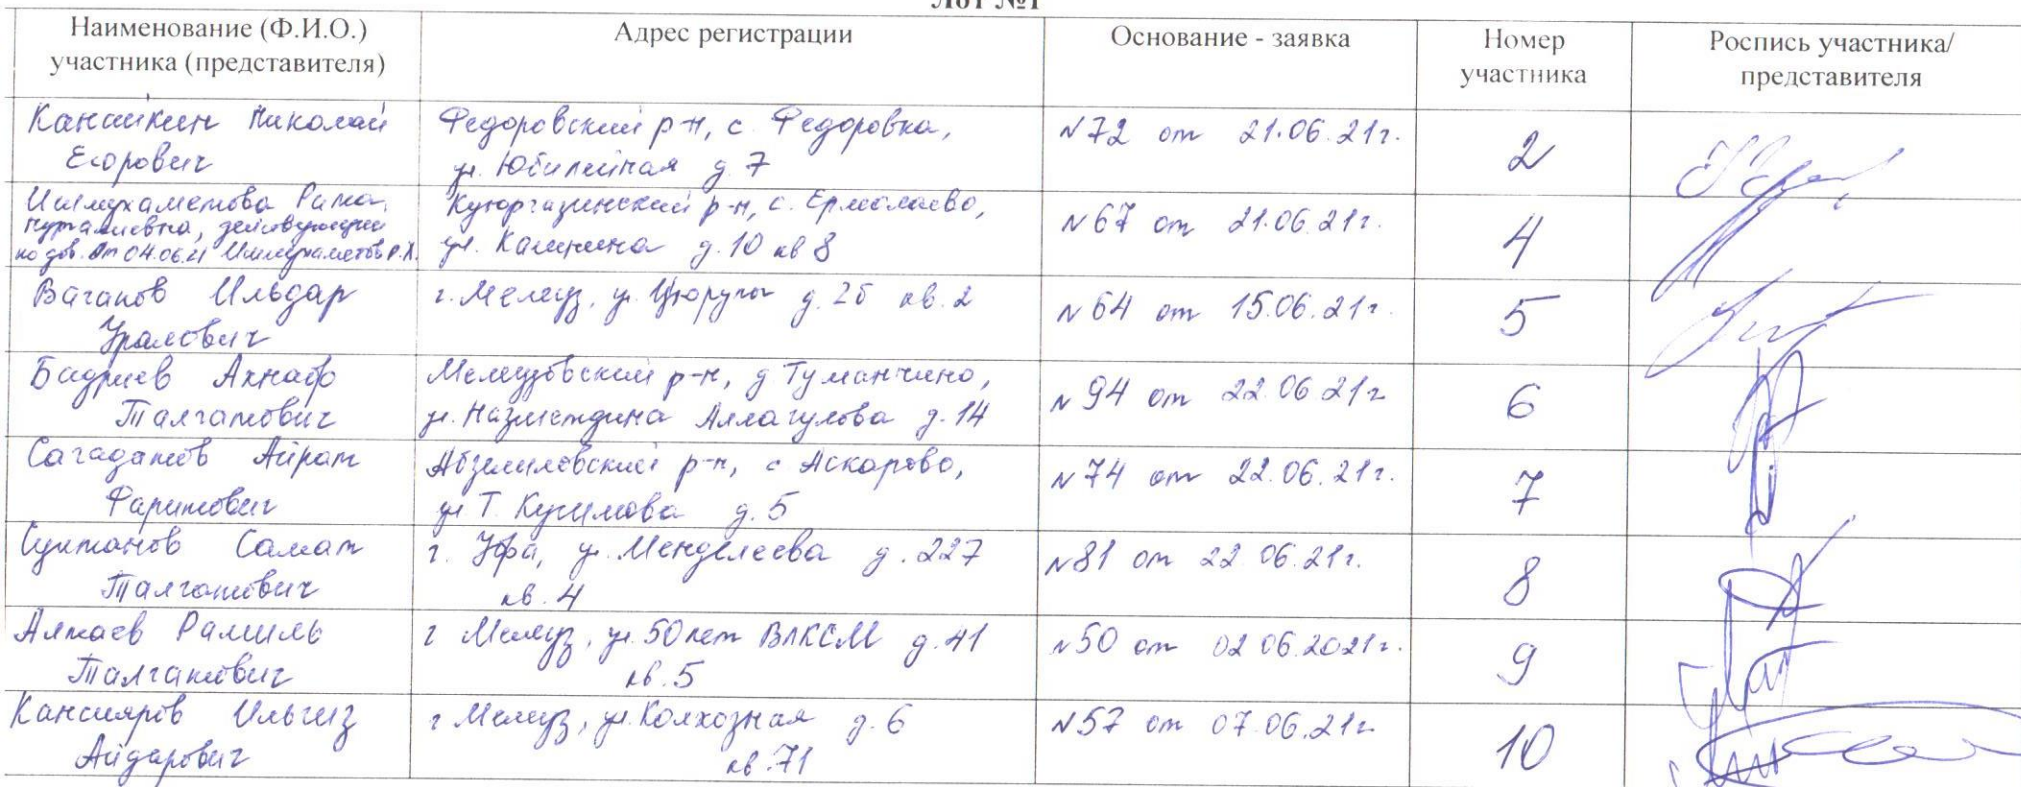 Лот №1
Наименование (Ф.И.О.) участника (представителя)
Адрес регистрации
Основание - заявка
Номер участника
Роспись участника/ представителя
Канайкин Николай
Егорович
Федоровский р-н, с. Федоровка,
ул. Юбилейная д. 7
№72 от 21.06.21г.
2
Ишмухаметова Рима
Нургалиевна, действующий
по дов. от 04.06.21 Ишмухаметов Р.Х.
Куюргазинский р-н, с. Ермолаево,
ул. Калинина д. 10 кв 8
№67 от 21.06.21г.
4
Ваганов Ильдар
Уралович
г. Мелеуз, ул. Цюрупы д. 2б кв. 2
№64 от 15.06.21г.
5
Бадриев Ахнаф
Талгатович
Мелеузовский р-н, д Туманчино,
ул. Назметдина Аллагулова д. 14
№94 от 22.06 21г
6
Сагадатов Айрат
Фаритович
Абзелиловский р-н, с Аскарово,
ул Т. Кусимова д. 5
№74 от 22.06.21г.
7
Султанов Самат
Талгатович
г. Уфа, ул. Менделеева д. 227
кв. 4
№81 от 22.06.21г.
8
Алтаев Рамиль
Талгатович
г Мелеуз, ул. 50 лет ВЛКСМ д. 41
кв. 5
№50 от 02.06.2021г.
9
Кансияров Ильгиз
Айдарович
г Мелеуз, ул. Колхозная д. 6
кв. 71
№57 от 07.06.21г.
10